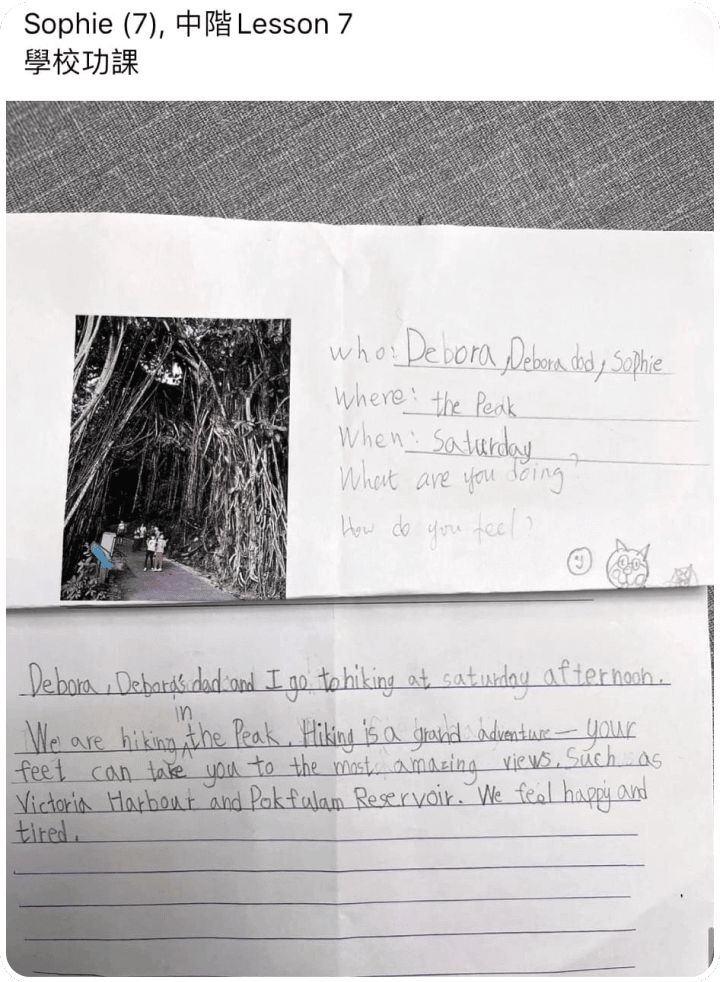 Sophie (7), 中階Lesson 7
學校功課
who: Debora, Debora dad, Sophie
Where: the Peak
When: Saturday
What are you doing?
How do you feel?
Debora, Debora's dad and I go to hiking at saturday afternoon.
in
We are hiking the Peak. Hiking is a grand adventure — your
feet can take you to the most amazing views. Such as
Victoria Harbour and Pokfulam Reservoir. We feel happy and
tired.